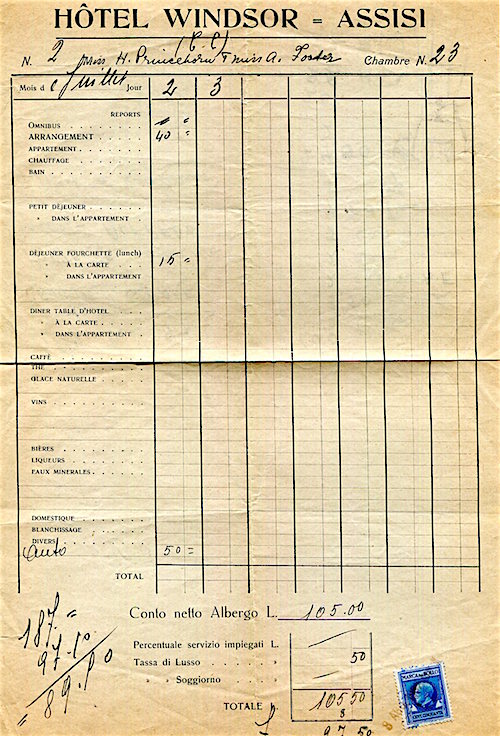 HÔTEL WINDSOR = ASSISI
(C C)
N. 2 Miss H. Princehorn & Miss A. Foster Chambre N. 23
Mois de Juillet Jour 2 3
REPORTS
OMNIBUS
ARRANGEMENT 40 =
APPARTEMENT
CHAUFFAGE
BAIN
PETIT DÉJEUNER
» DANS L'APPARTEMENT
DÉJEUNER FOURCHETTE (lunch) 15 =
» À LA CARTE
» DANS L'APPARTEMENT
DINER TABLE D'HOTEL
» À LA CARTE
» DANS L'APPARTEMENT
CAFFÈ
THE
GLACE NATURELLE
VINS
BIÈRES
LIQUEURS
EAUX MINERALES
DOMESTIQUE
BLANCHISSAGE
DIVERS
Auto 50 =
TOTAL
Conto netto Albergo L. 105.00
Percentuale servizio impiegati L.
Tassa di Lusso » 50
» » Soggiorno »
TOTALE L. 105 50
8
97 50
187. =
97.50
89.50
MARCA DA BOLLO